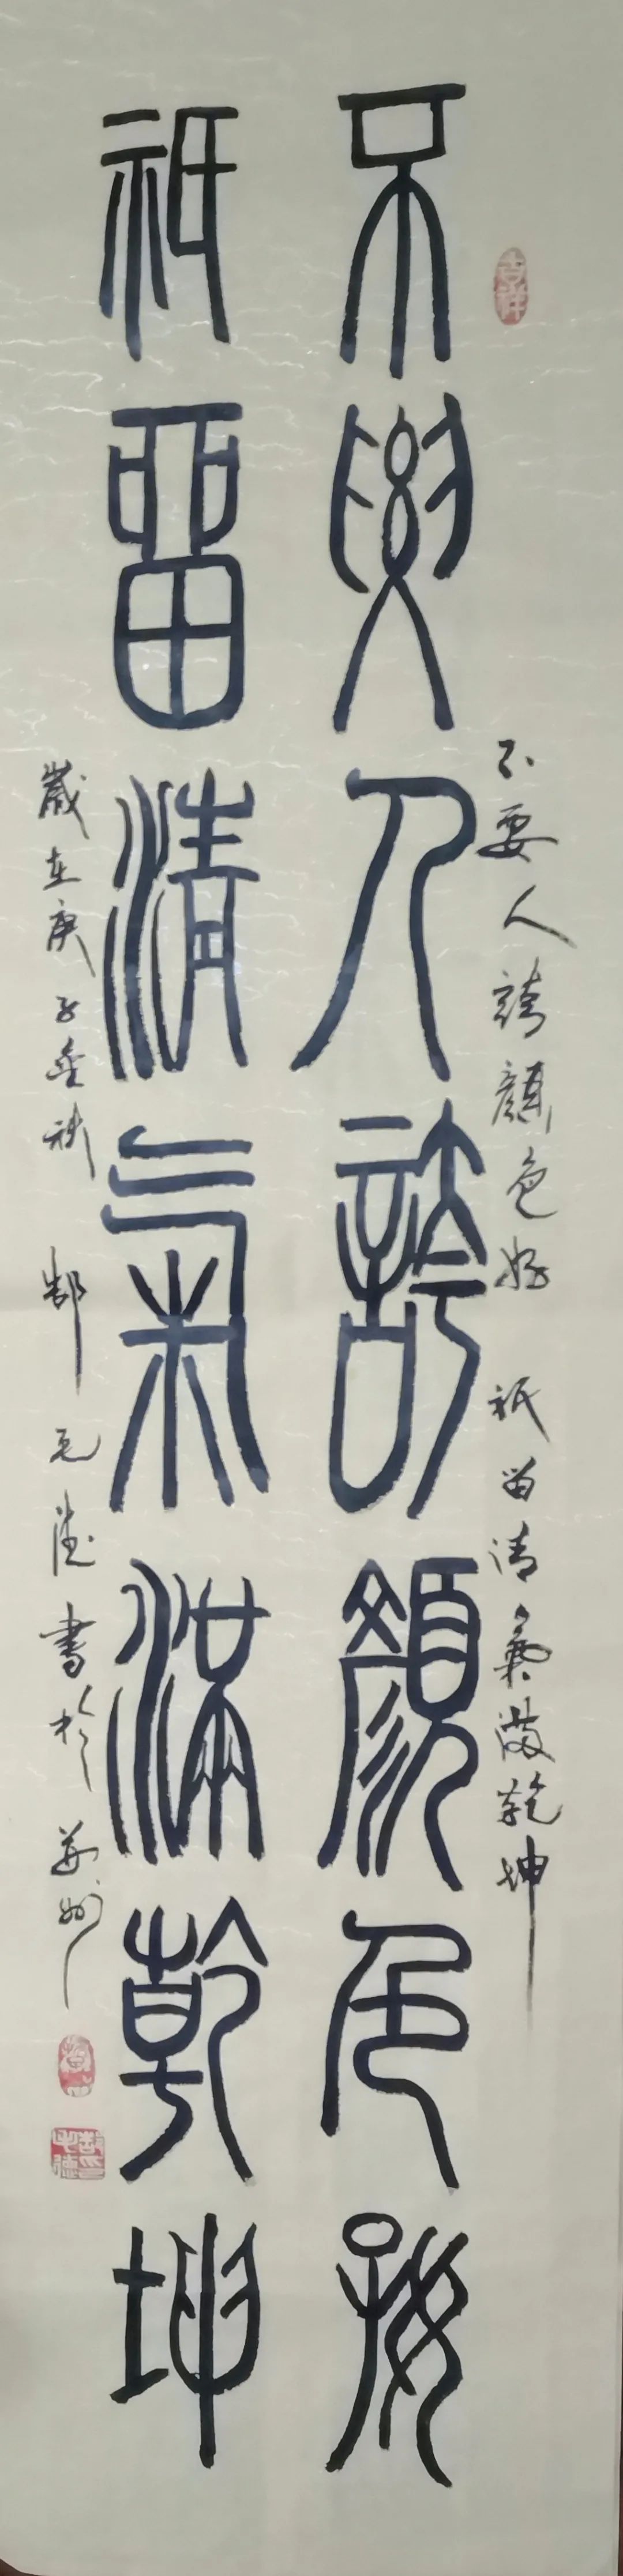 吉祥
不要人誇顏色好 祇留清氣滿乾坤
不要人誇顏色好
祇留清氣滿乾坤
歲在庚子 郜 書於